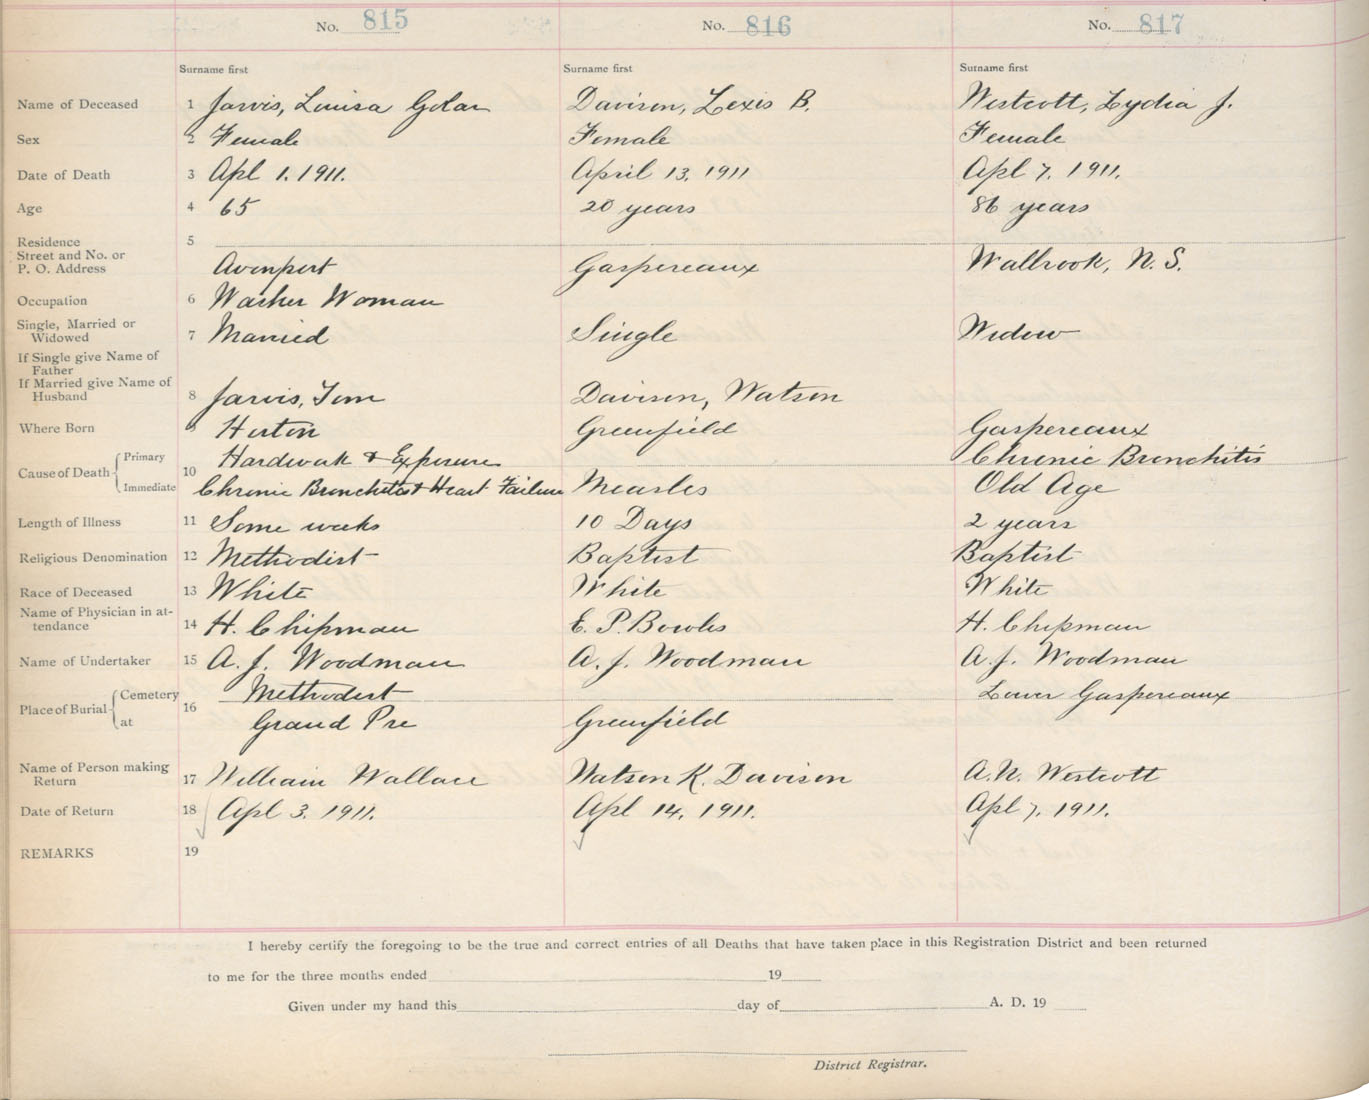 No. 815 No. 816 No. 817
Surname first Surname first Surname first
Name of Deceased 1 Jarvis, Louisa Davison, Lexis B. Westcott, Lydia J.
Sex 2 Female Female Female
Date of Death 3 Apl 1. 1911. April 13, 1911 Apl 7, 1911.
Age 4 65 20 years 86 years
Residence 5
Street and No. or
P. O. Address Avonport Gaspereaux Walbrook, N. S.
Occupation 6 Washer Woman
Single, Married or
Widowed 7 Married Single Widow
If Single give Name of
Father
If Married give Name of
Husband 8 Jarvis, Tom Davison, Watson
Where Born 9 Horton Greenfield Gaspereaux
Cause of Death Primary 10 Hardwork & Exposure Chronic Bronchitis
Immediate Chronic Bronchitis & Heart Failure Measles Old Age
Length of Illness 11 Some weeks 10 Days 2 years
Religious Denomination 12 Methodist Baptist Baptist
Race of Deceased 13 White White White
Name of Physician in at-
tendance 14 H. Chipman E. P. Bowles H. Chipman
Name of Undertaker 15 A. J. Woodman A. J. Woodman A. J. Woodman
Place of Burial Cemetery 16 Methodist Lower Gaspereaux
at Grand Pre Greenfield
Name of Person making
Return 17 William Wallace Watson K. Davison A. W. Westcott
Date of Return 18 Apl 3. 1911. Apl 14, 1911. Apl 7, 1911.
REMARKS 19
I hereby certify the foregoing to be the true and correct entries of all Deaths that have taken place in this Registration District and been returned
to me for the three months ended 19
Given under my hand this day of A. D. 19
District Registrar.